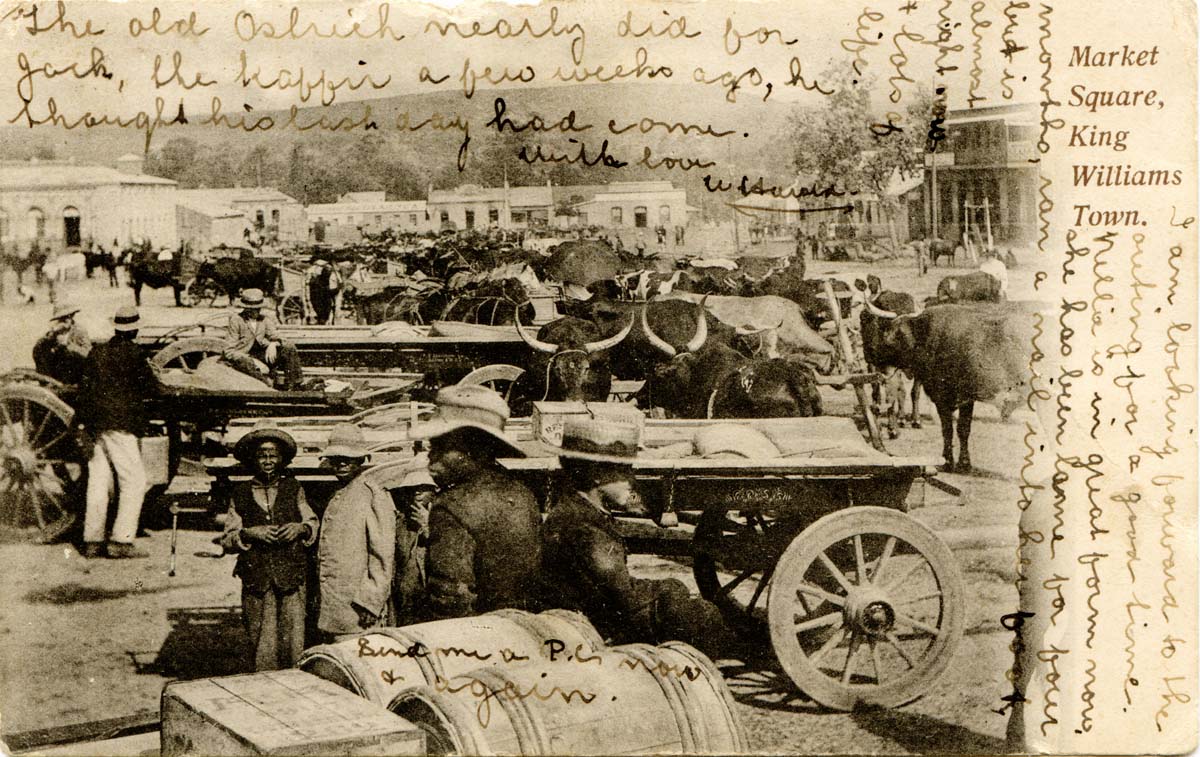 The old Ostrich nearly did for
Jack, the kaffir a few weeks ago, he
thought his last day had come.
With love
Market
Square,
King
Williams
Town.
I am looking forward to the
outing for a good time.
Nellie is in great form now
she has been lame for four
months, ran a nail into her
foot,
but is
almost
right now
+ lots of
life.
Send me a P.C. now
& again.